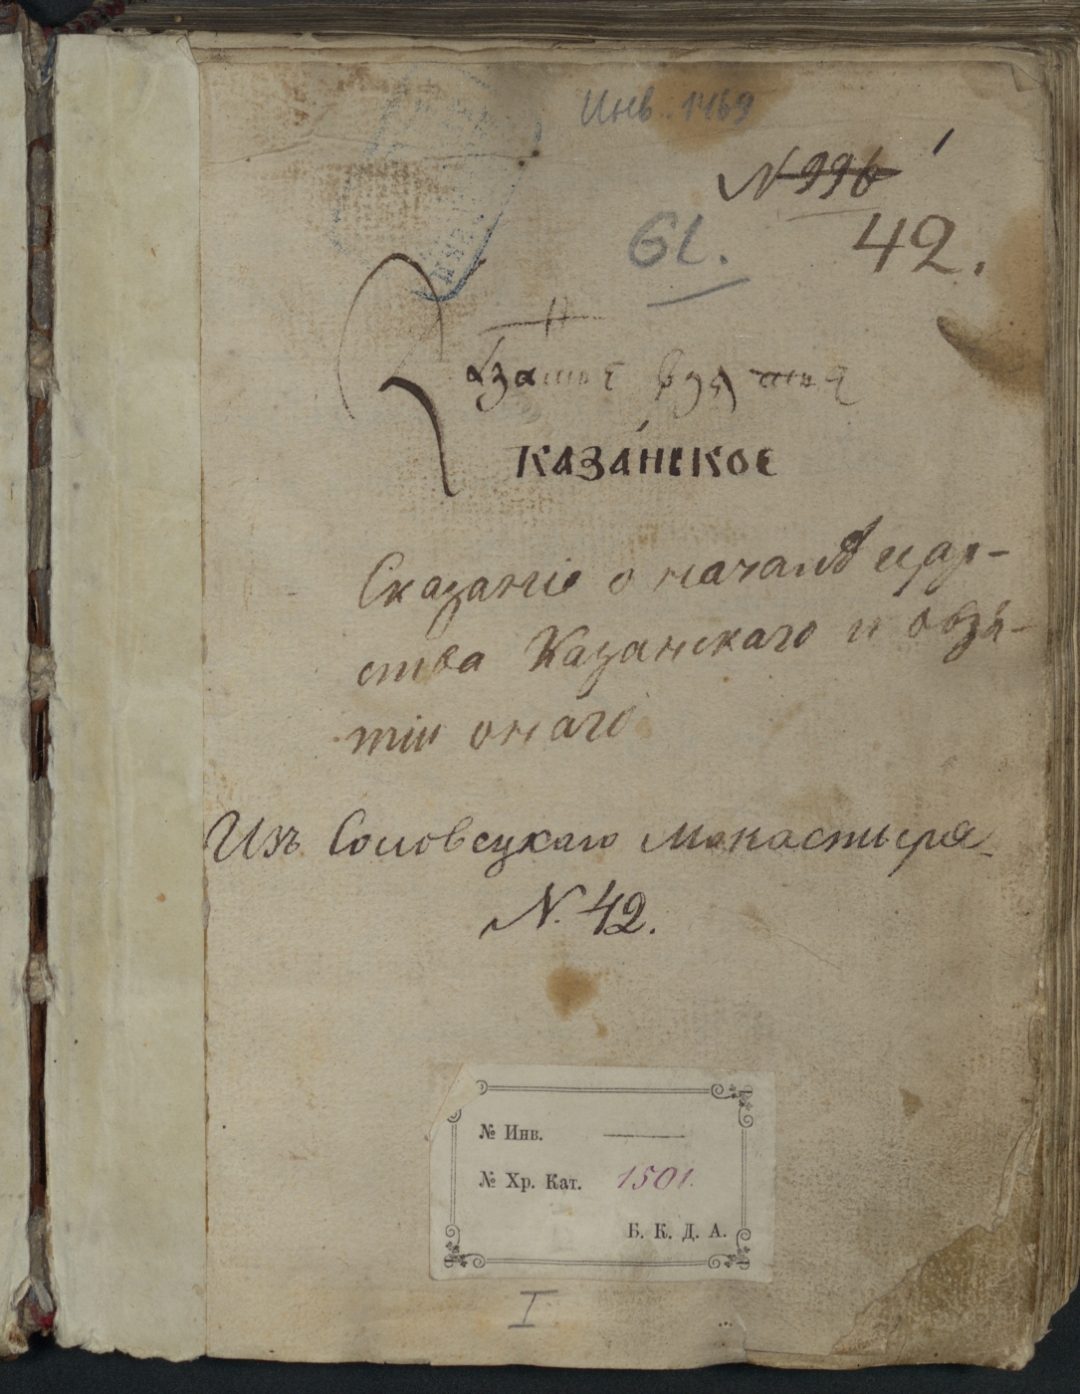 Инв. 1469
N 996
61.
42.
каза́нское
Сказаніе о началѣ цар-
ства Казанскаго и о взя-
тіи онаго
Изъ Соловецкаго монастыря
N. 42.
№ Инв.
№ Хр. Кат. 1501.
Б. К. Д. А.
I